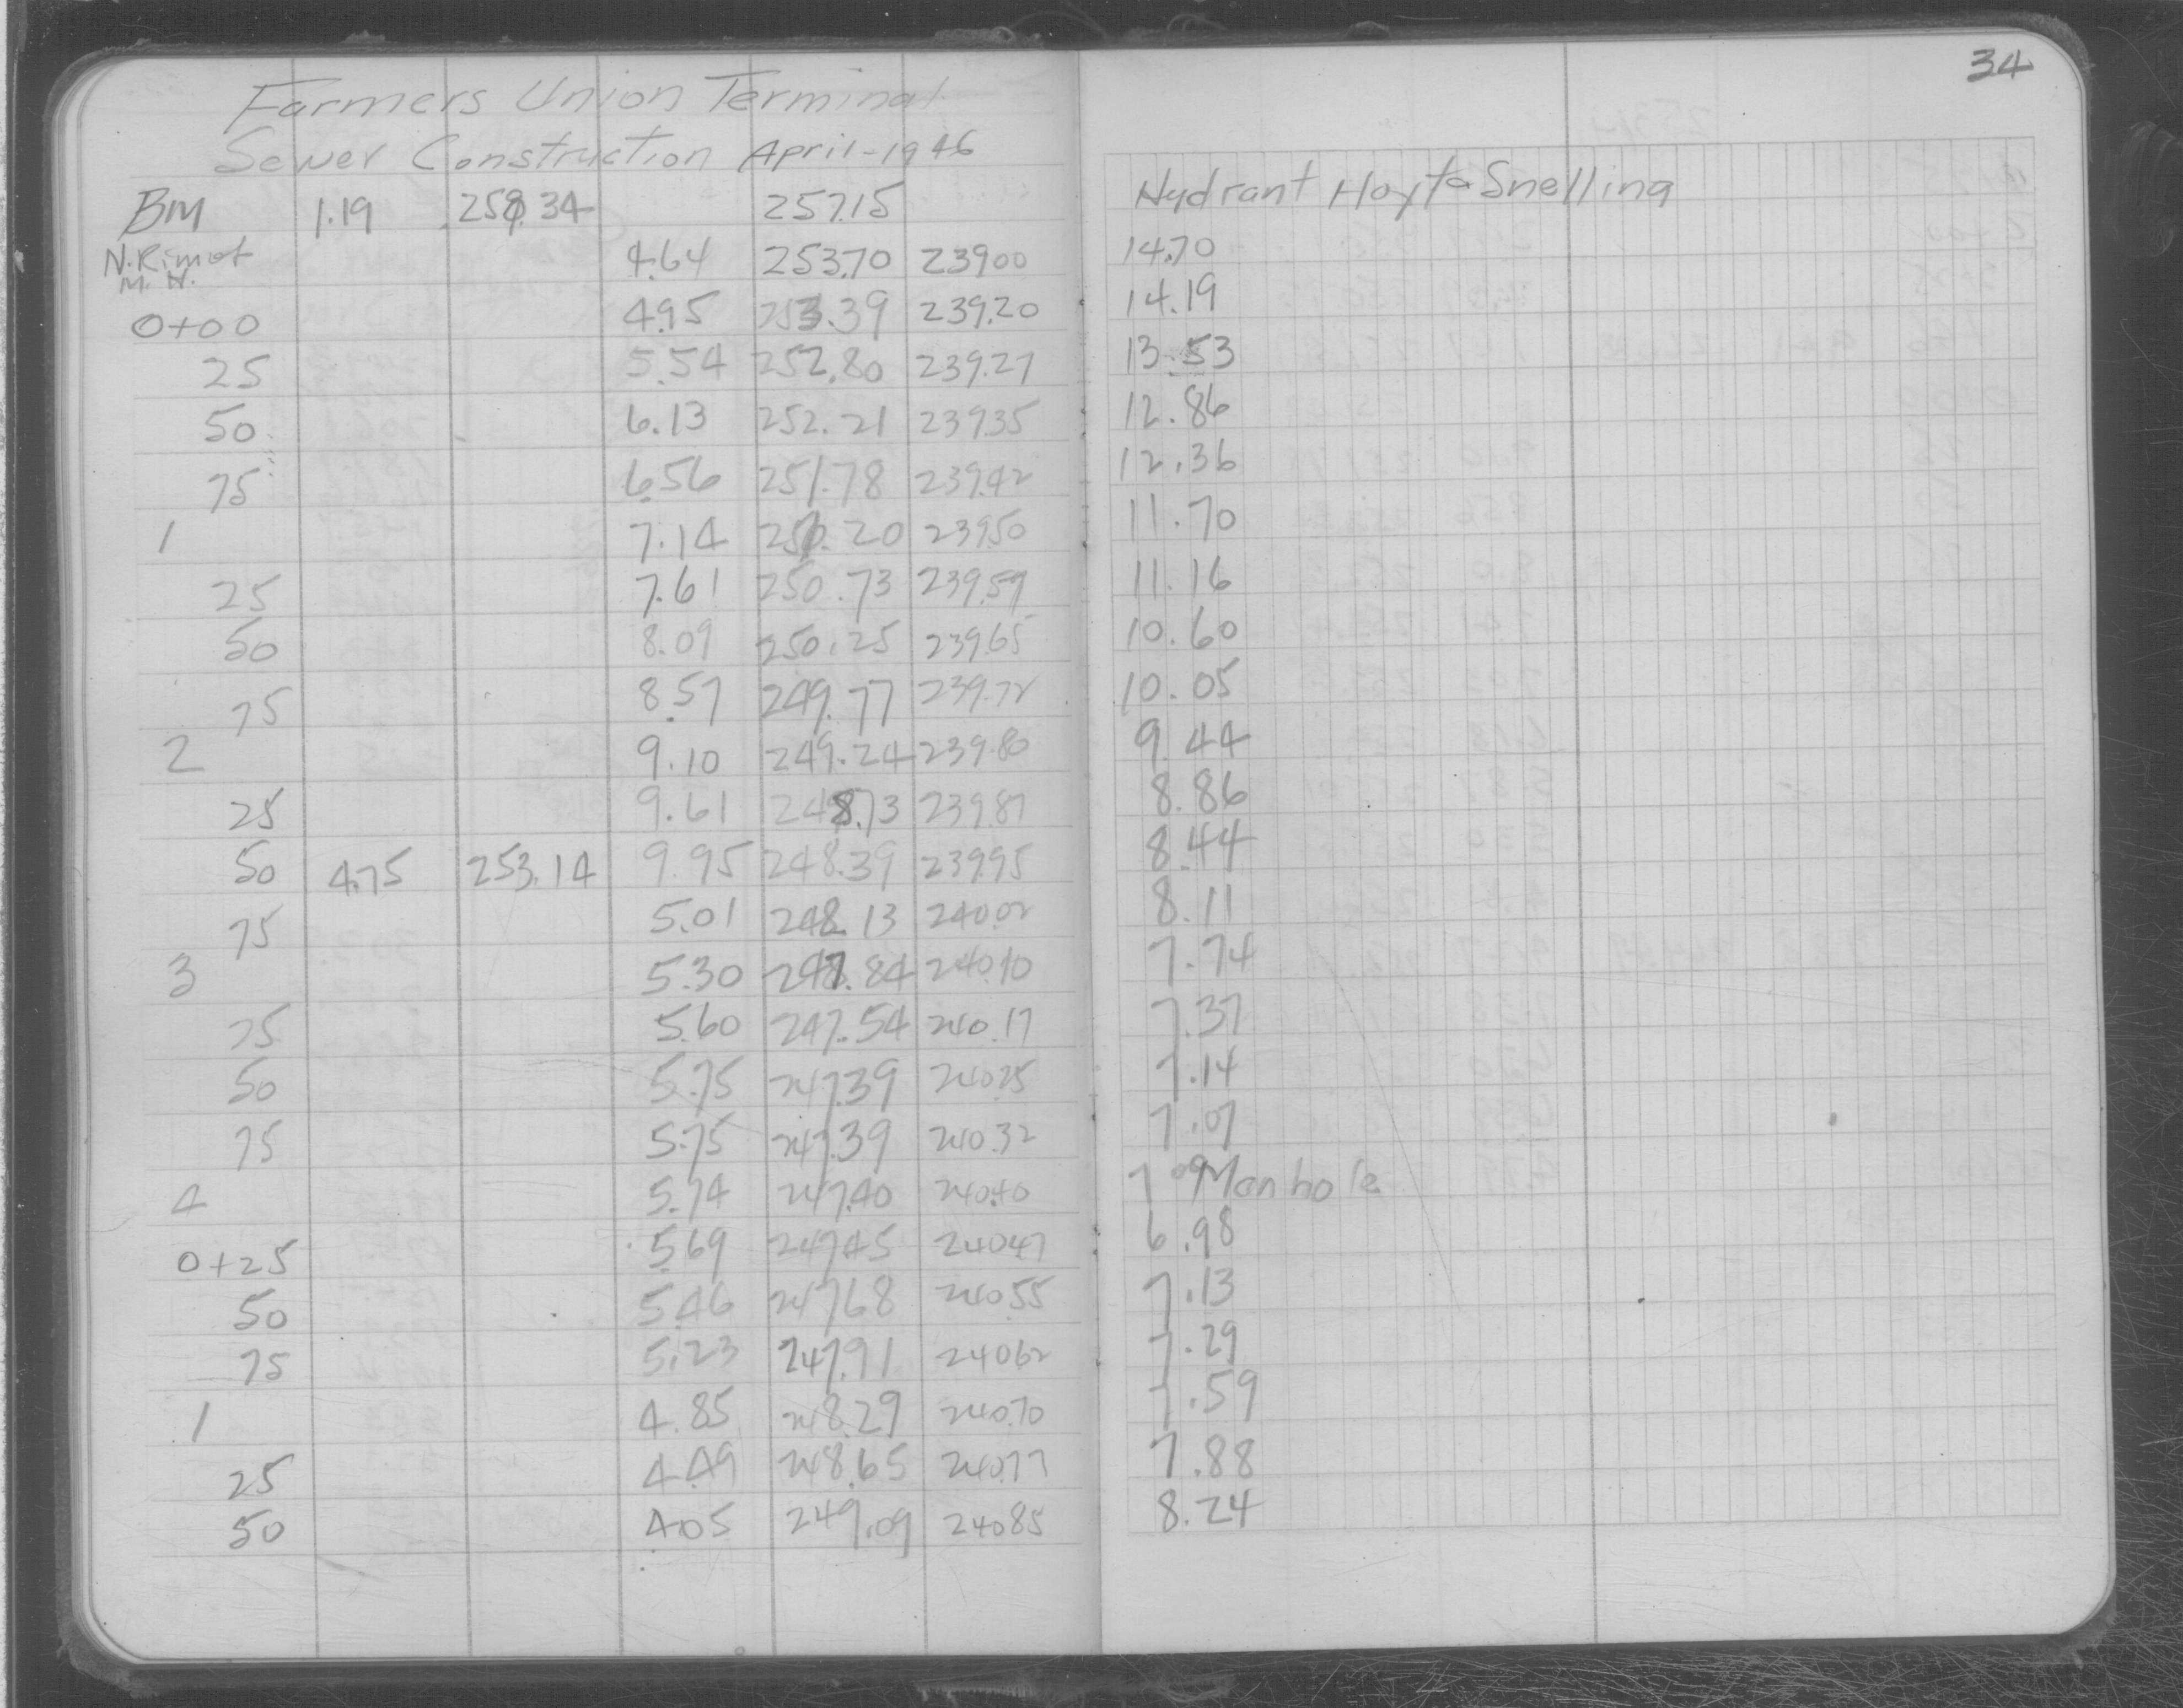 34
Farmers Union Terminal
Sewer Construction April-1946
BM 1.19 258.34 257.15 Hydrant Hoyt & Snelling
N. Rim of M.H. 4.64 253.70 239.00 14.70
0+00 4.95 253.39 239.20 14.19
25 5.54 252.80 239.27 13.53
50 6.13 252.21 239.35 12.86
75 6.56 251.78 239.42 12.36
1 7.14 251.20 239.50 11.70
25 7.61 250.73 239.57 11.16
50 8.09 250.25 239.65 10.60
75 8.57 249.77 239.72 10.05
2 9.10 249.24 239.80 9.44
25 9.61 248.73 239.87 8.86
50 4.75 253.14 9.95 248.39 239.95 8.44
75 5.01 248.13 240.02 8.11
3 5.30 247.84 240.10 7.74
25 5.60 247.54 240.17 7.37
50 5.75 247.39 240.25 7.14
75 5.75 247.39 240.32 7.07
4 5.74 247.40 240.40 7.00 Manhole
0+25 5.69 247.45 240.47 6.98
50 5.46 247.68 240.55 7.13
75 5.23 247.91 240.62 7.29
1 4.85 248.29 240.70 7.59
25 4.49 248.65 240.77 7.88
50 4.05 249.09 240.85 8.24